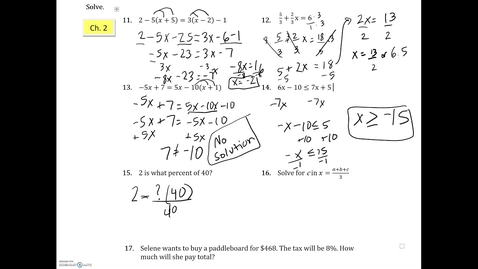 Solve.
Ch. 2
11. 2 − 5(x + 5) = 3(x − 2) − 1
2 - 5x - 25 = 3x - 6 - 1
-5x - 23 = 3x - 7
-3x -3x
-8x - 23 = -7
-8x = 16
-8 -8
x = -2
12. 5/3 + 2/3 x = 6
5 + 2x = 18
-5 -5
2x = 13
2 2
x = 13/2 or 6.5
13. −5x + 7 = 5x − 10(x + 1)
-5x + 7 = 5x - 10x - 10
-5x + 7 = -5x - 10
+5x +5x
7 ≠ -10
No
Solution
14. 6x − 10 ≤ 7x + 5
-7x -7x
-x - 10 ≤ 5
+10 +10
-x ≤ 15
-1 -1
x ≥ -15
15. 2 is what percent of 40?
2 = ? (40)
40
16. Solve for c in x = (a+b+c)/3
17. Selene wants to buy a paddleboard for $468. The tax will be 8%. How
much will she pay total?